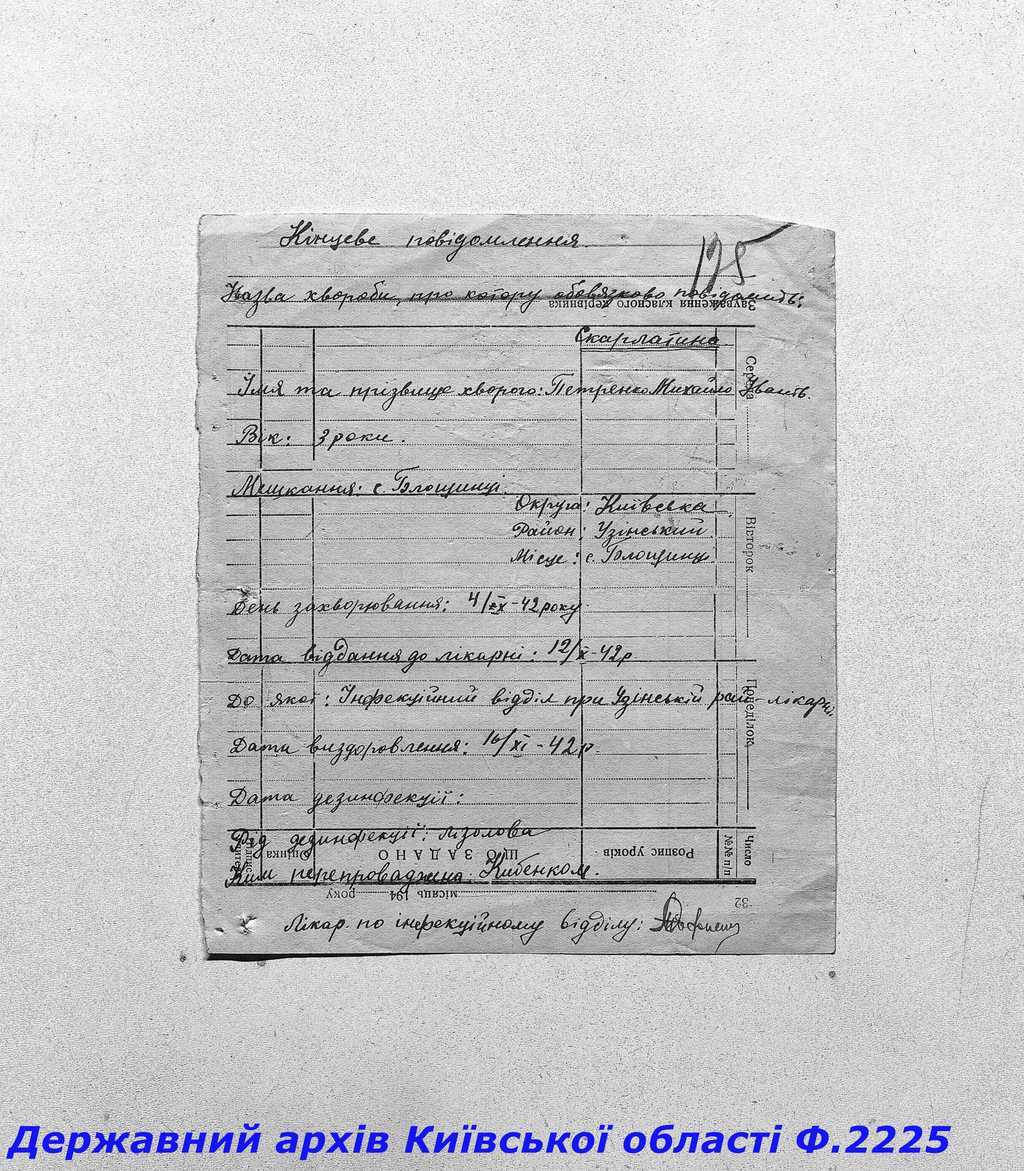 Кінцеве повідомлення.
125
Назва хвороби, про котору обовязково повідомить:
Зауваження класного керівника
Скарлатина
Середа
Імя та прізвище хворого: Петренко Михайло Іванів.
Вік: 3 роки.
Мешкання: с. Блощинці.
Округа: Київська.
Район: Узінський.
Вівторок
Місце: с. Блощинці.
День захворювання: 4/ІХ-42 року.
Дата віддання до лікарні: 12/Х-42р.
До якої: Інфекційний відділ при Узінській рай-лікарні.
Понеділок
Дата виздоровлення: 16/ХІ-42р.
Дата дезинфекції:
Рід дезинфекції: лізолова
Число
№№ п/п
Розпис уроків
ЩО ЗАДАНО
Оцінка
Ким перепроваджина: Кибенком.
місяць 194 року
32
Лікар. по інфекційному відділу:
Державний архів Київської області Ф.2225